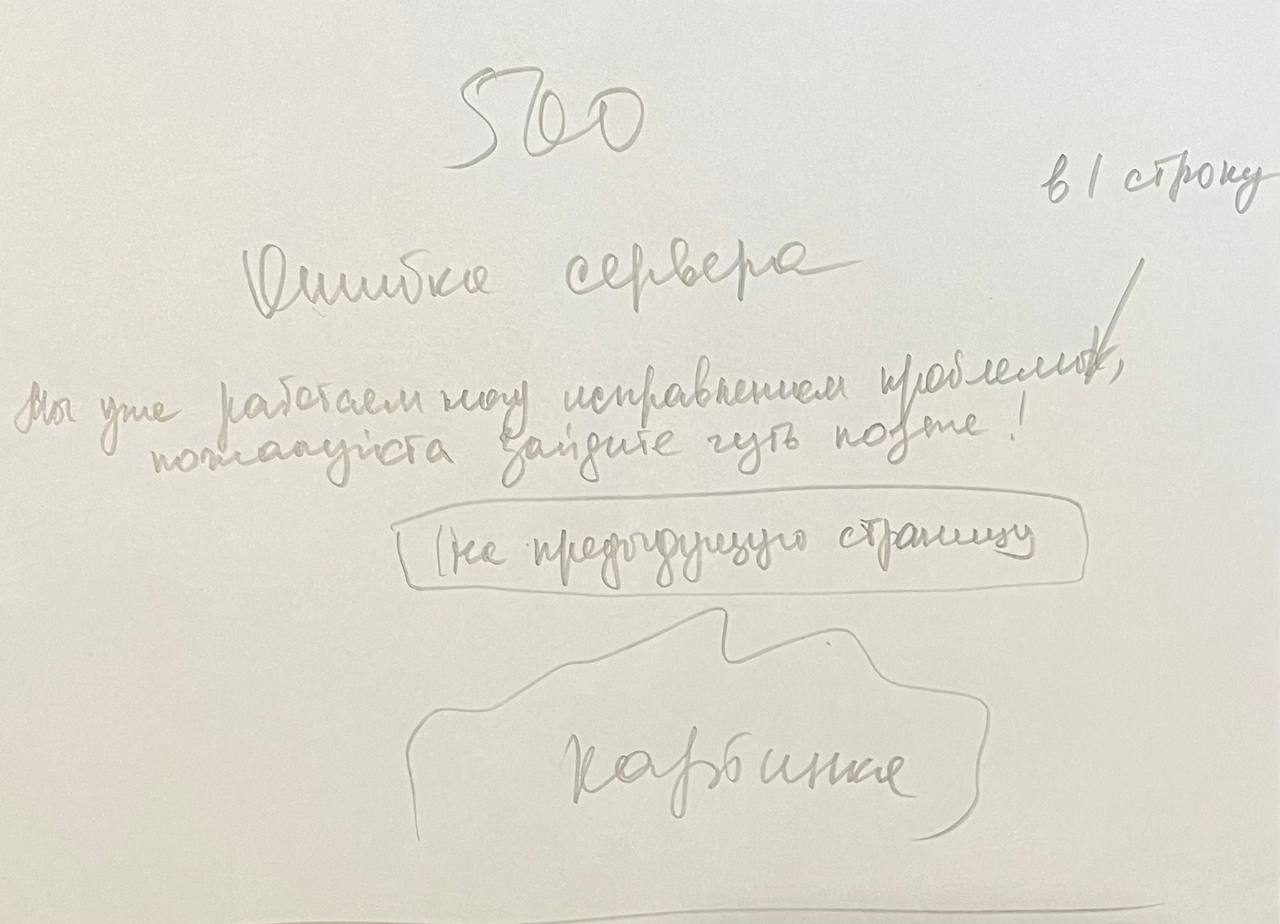 500
в 1 строку
Ошибка сервера
Мы уже работаем над исправлением проблемы,
пожалуйста зайдите чуть позже!
На предыдущую страницу
картинка